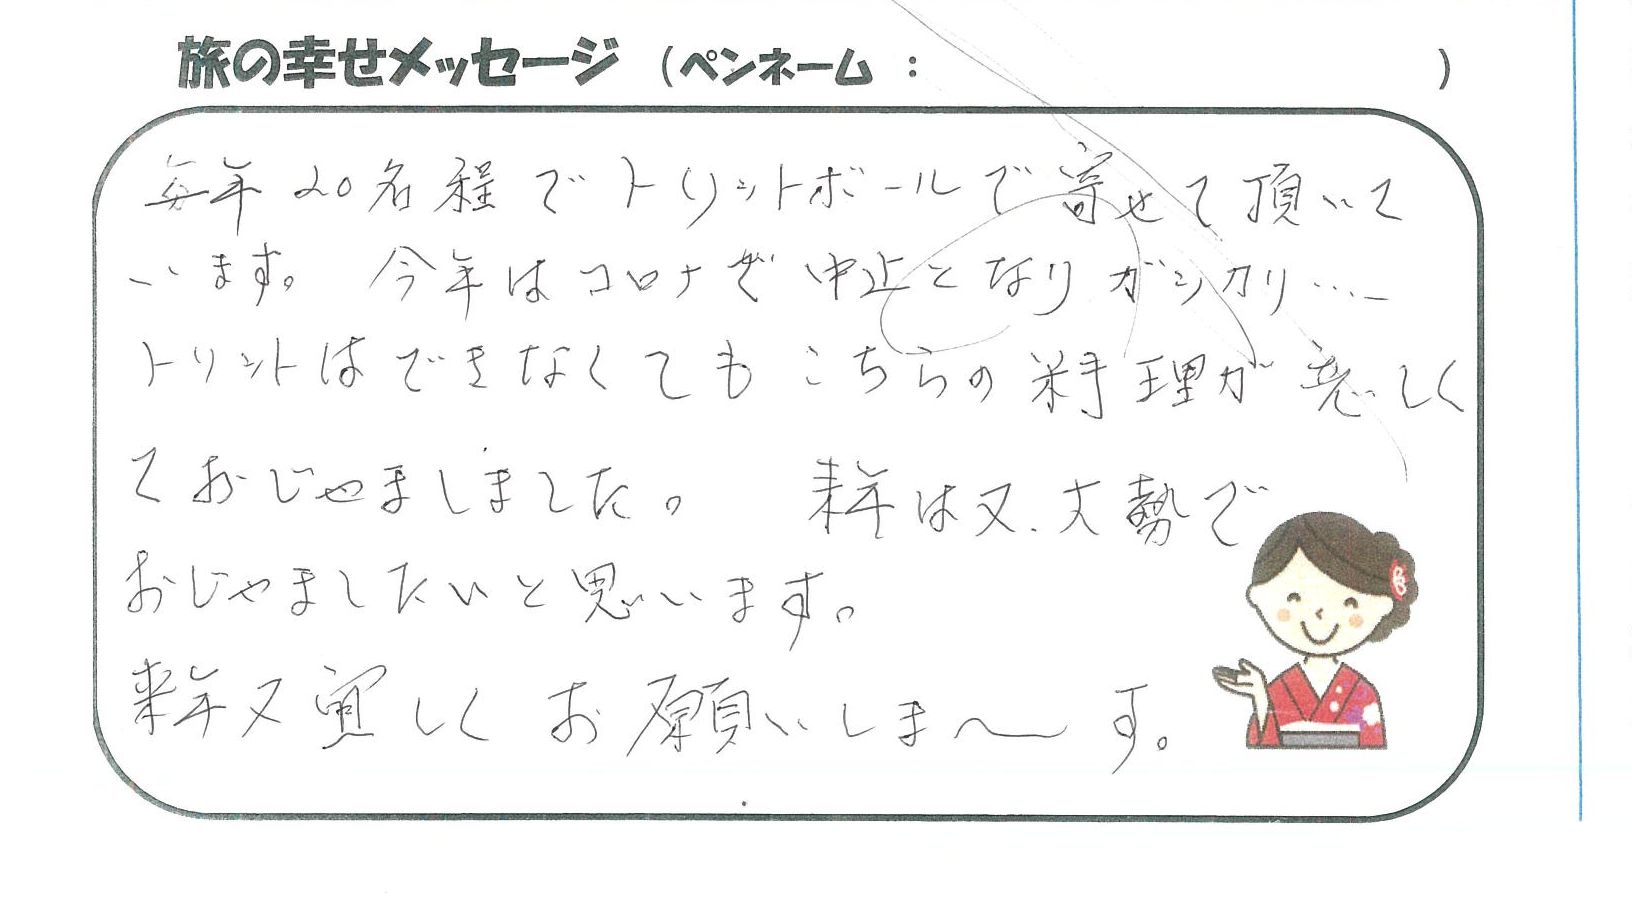 旅の幸せメッセージ (ペンネーム： )
毎年20名程でトリットボールで寄せて頂いて
います。 今年はコロナで中止となりガッカリ……
トリットはできなくてもこちらの料理が恋しく
ておじゃましました。 来年は又、大勢で
おじゃましたいと思います。
来年又宜しくお願いしま〜す。